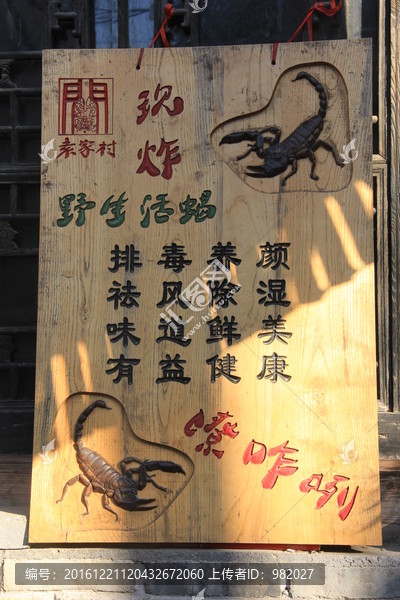 袁家村
现炸
野生活蝎
排毒养颜
祛风除湿
味道鲜美
有益健康
嘹咋咧
编号：20161221120432672060 上传者ID：982027